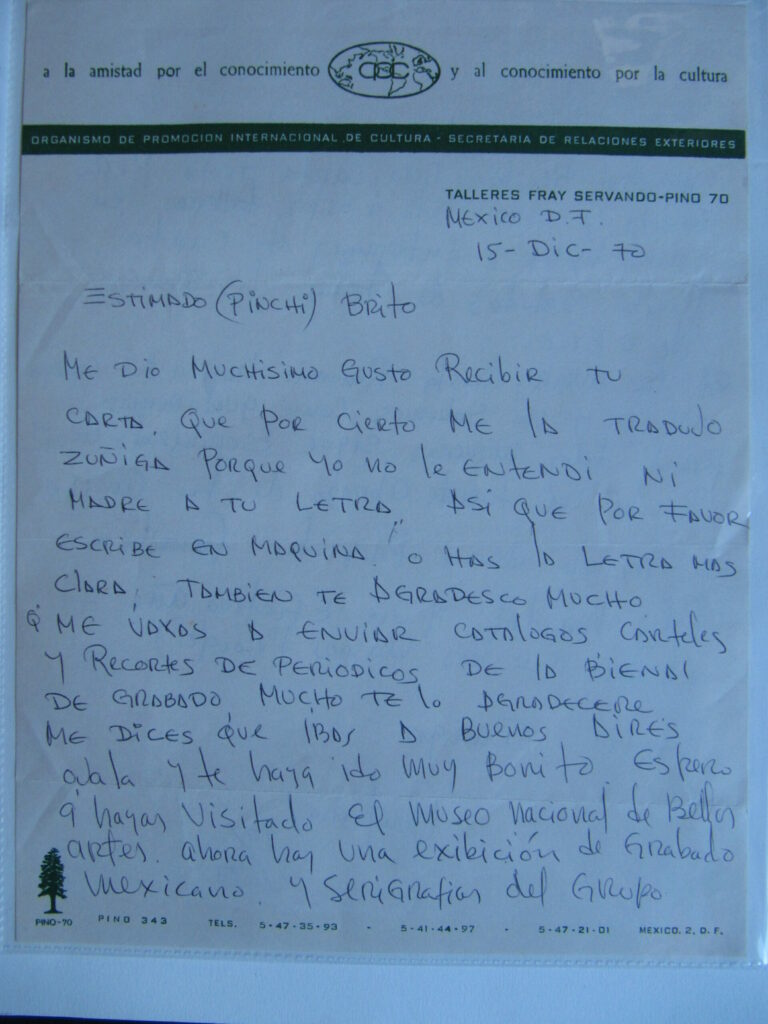 a la amistad por el conocimiento OPIC y al conocimiento por la cultura
ORGANISMO DE PROMOCION INTERNACIONAL DE CULTURA - SECRETARIA DE RELACIONES EXTERIORES
TALLERES FRAY SERVANDO-PINO 70
MEXICO D.F.
15- DIC- 70
ESTIMADO (PINCHI) BRITO
ME DIO MUCHISIMO GUSTO RECIBIR TU
CARTA. QUE POR CIERTO ME LA TRADUJO
ZUÑIGA PORQUE YO NO LE ENTENDI NI
MADRE A TU LETRA,, ASI QUE POR FAVOR
ESCRIBE EN MAQUINA! O HAS LA LETRA MAS
CLARA; TAMBIEN TE AGRADESCO MUCHO
Q' ME VAYAS A ENVIAR CATALOGOS CARTELES
Y RECORTES DE PERIODICOS DE LA BIENAL
DE GRABADO, MUCHO TE LO AGRADECERE
ME DICES QUE IBAS A BUENOS AIRES
ojala y te haya ido muy Bonito. Espero
q' hayas visitado El Museo Nacional de Bellas
artes. ahora hay una exibición de Grabado
Mexicano. y serigrafias del Grupo
PINO-70 PINO 343 TELS. 5-47-35-93 - 5-41-44-97 - 5-47-21-01 MEXICO. 2, D. F.